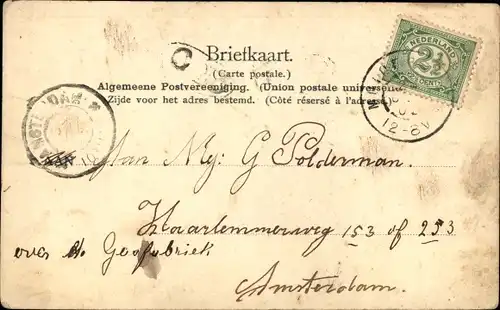 Briefkaart.
(Carte postale.)
Algemeene Postvereeniging. (Union postale universelle)
Zijde voor het adres bestemd. (Côté réservé à l'adresse)
NEDERLAND
2½
CENT
12-8V
Aan Mej: G Polderman.
Haarlemmerweg 153 of 253
over de Gasfabriek
Amsterdam.